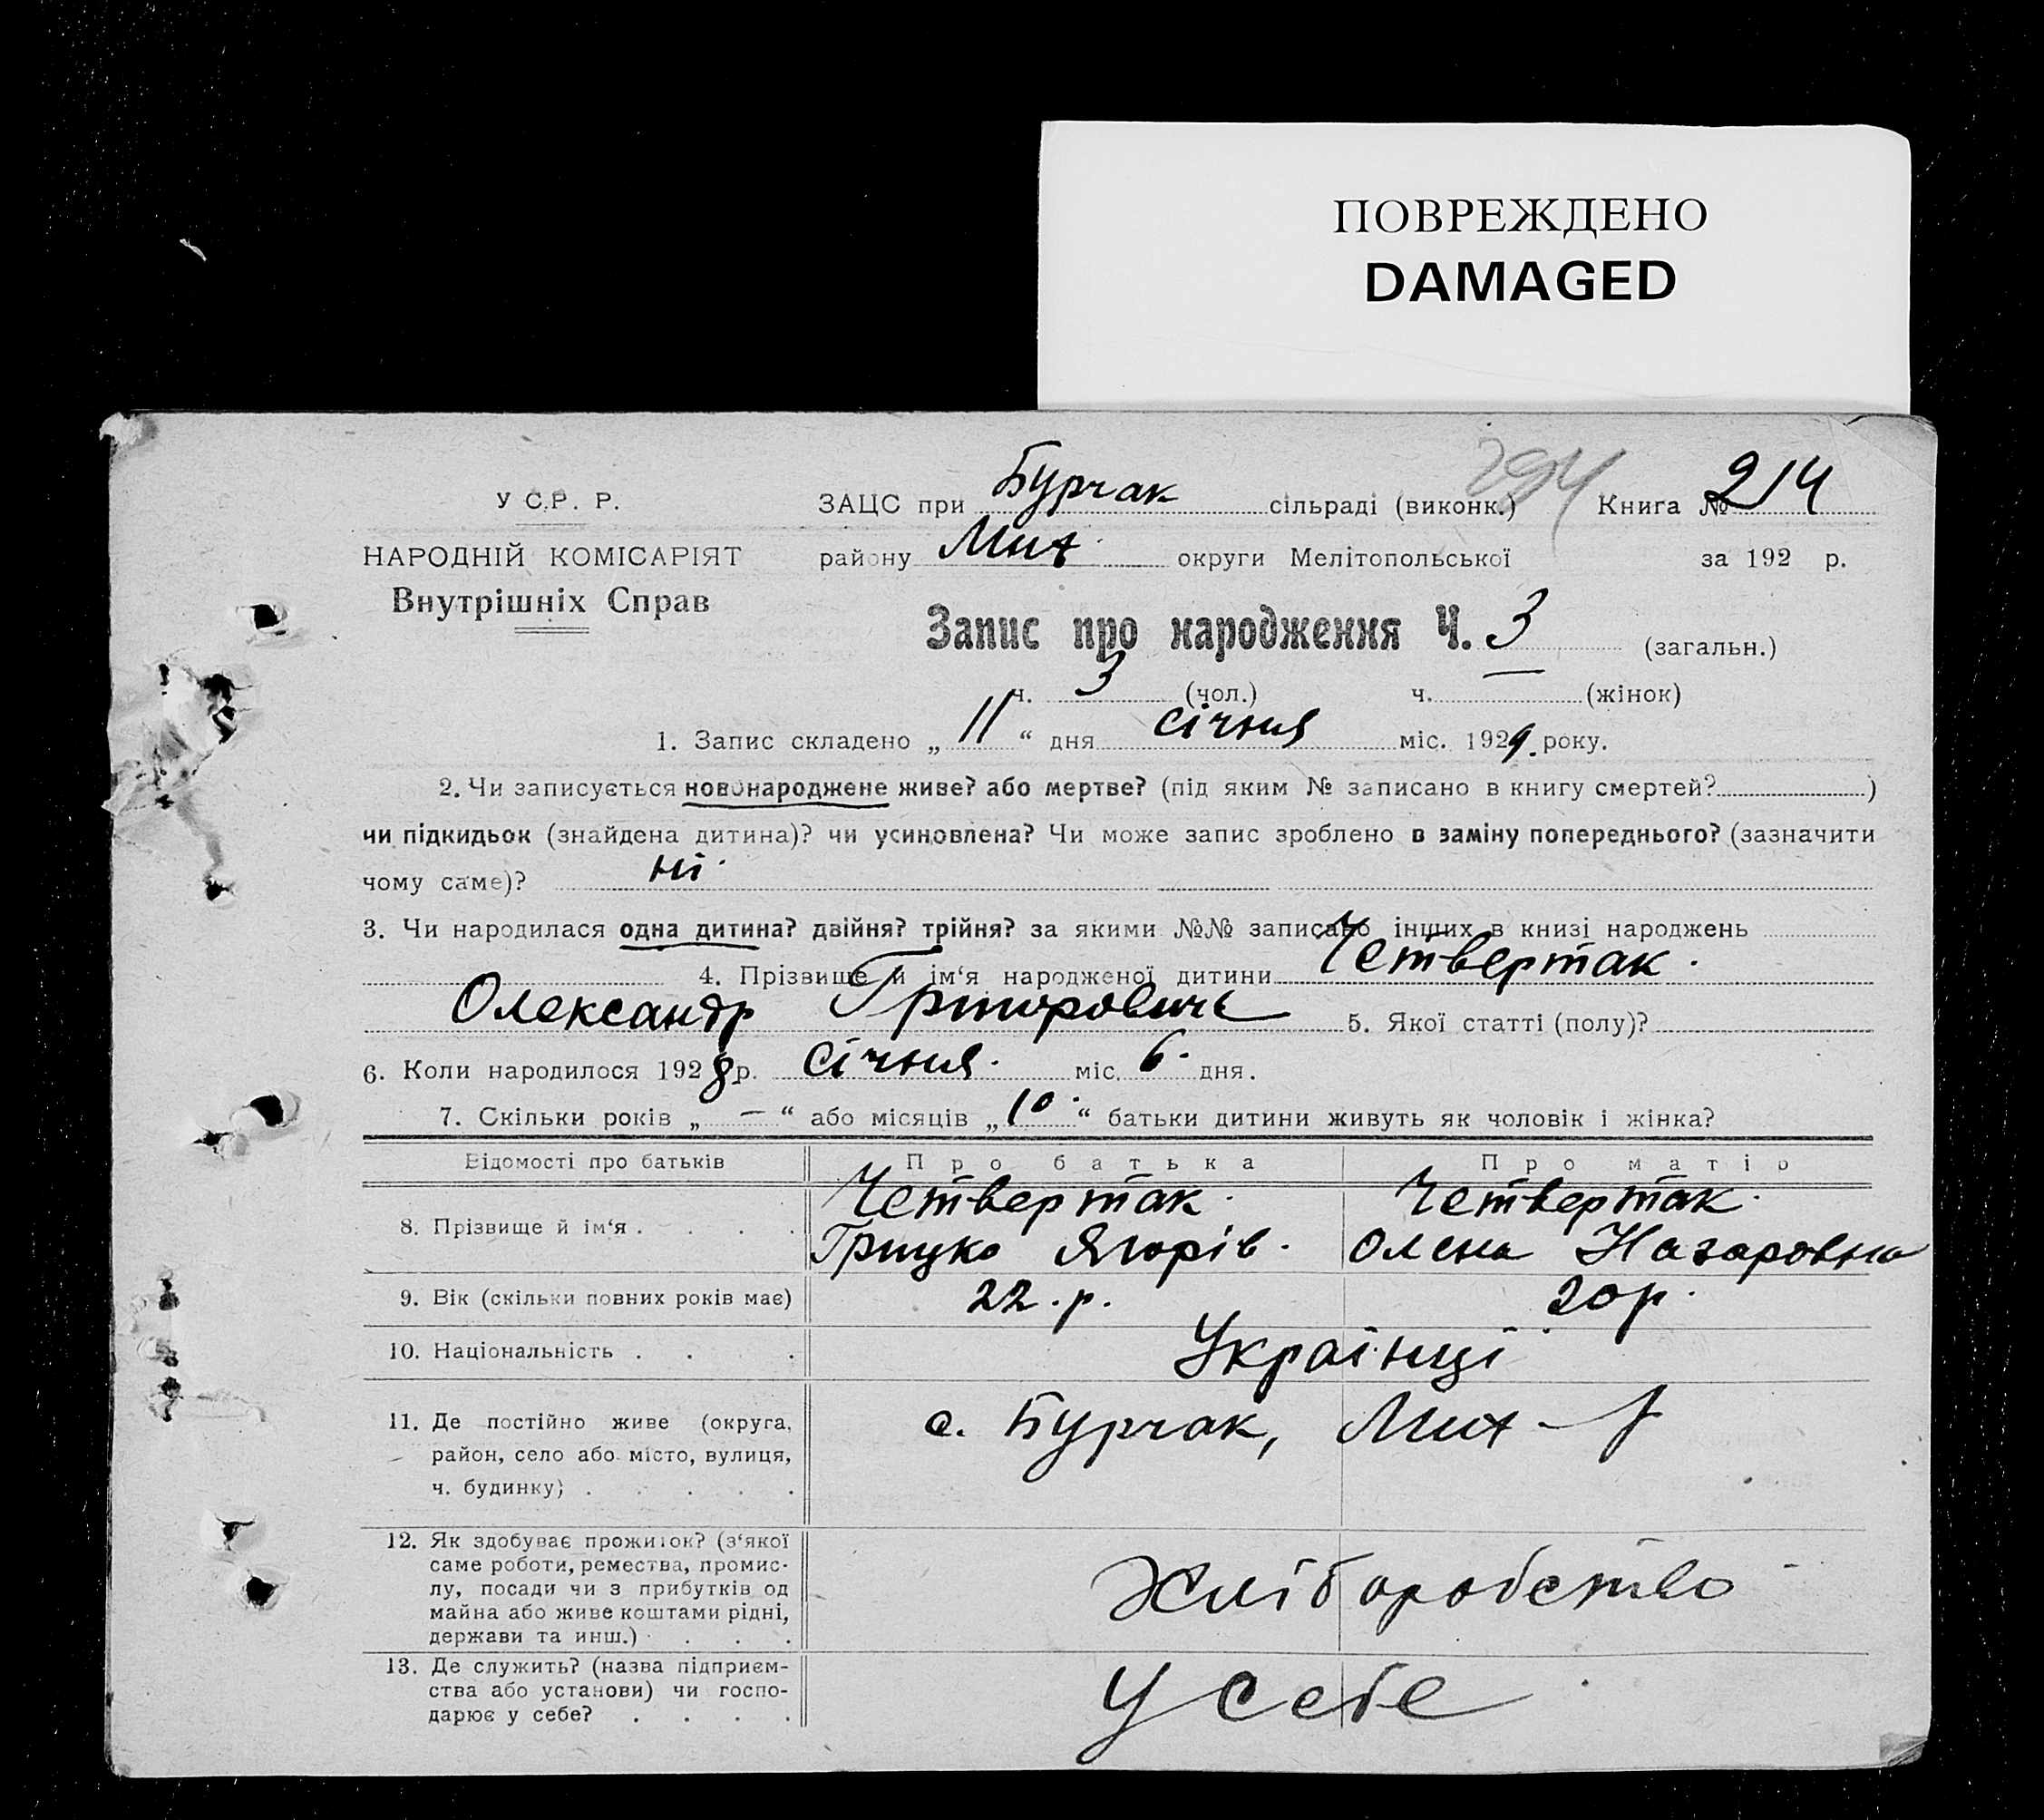 ПОВРЕЖДЕНО
DAMAGED
294
У С.Р. Р.
ЗАЦС при Бурчак сільраді (виконк.) Книга № 214
НАРОДНІЙ КОМІСАРІЯТ
району Мих. округи Мелітопольської за 192 р.
Внутрішніх Справ
Запис про народження Ч. 3 (загальн.)
ч. 3 (чол.) ч. — (жінок)
1. Запис складено „ 11 “ дня січня міс. 1929. року.
2. Чи записується новонароджене живе? або мертве? (під яким № записано в книгу смертей? )
чи підкидьок (знайдена дитина)? чи усиновлена? Чи може запис зроблено в заміну попереднього? (зазначити
чому саме)? ні.
3. Чи народилася одна дитина? двійня? трійня? за якими №№ записано інших в книзі народжень
4. Прізвище й ім‘я народженої дитини Четвертак.
Олександр Григорович 5. Якої статті (полу)?
6. Коли народилося 1928 р. січня. міс. 6. дня.
7. Скільки років „ — “ або місяців „ 10. “ батьки дитини живуть як чоловік і жінка?
Відомості про батьків Про батька Про матір
8. Прізвище й ім‘я . . . . Четвертак. Четвертак.
Грицко Ягорів. Олена Назаровна
9. Вік (скільки повних років має) 22. р. 20 р.
10. Національність . . . Українці
11. Де постійно живе (округа,
район, село або місто, вулиця,
ч. будинку) . . . . . с. Бурчак, Мих - р
12. Як здобуває прожиток? (з‘якої
саме роботи, ремества, промис-
лу, посади чи з прибутків од
майна або живе коштами рідні,
держави та инш.) . . . . Хліборобство
13. Де служить? (назва підприєм-
ства або установи) чи госпо-
дарює у себе? . . . . У себе